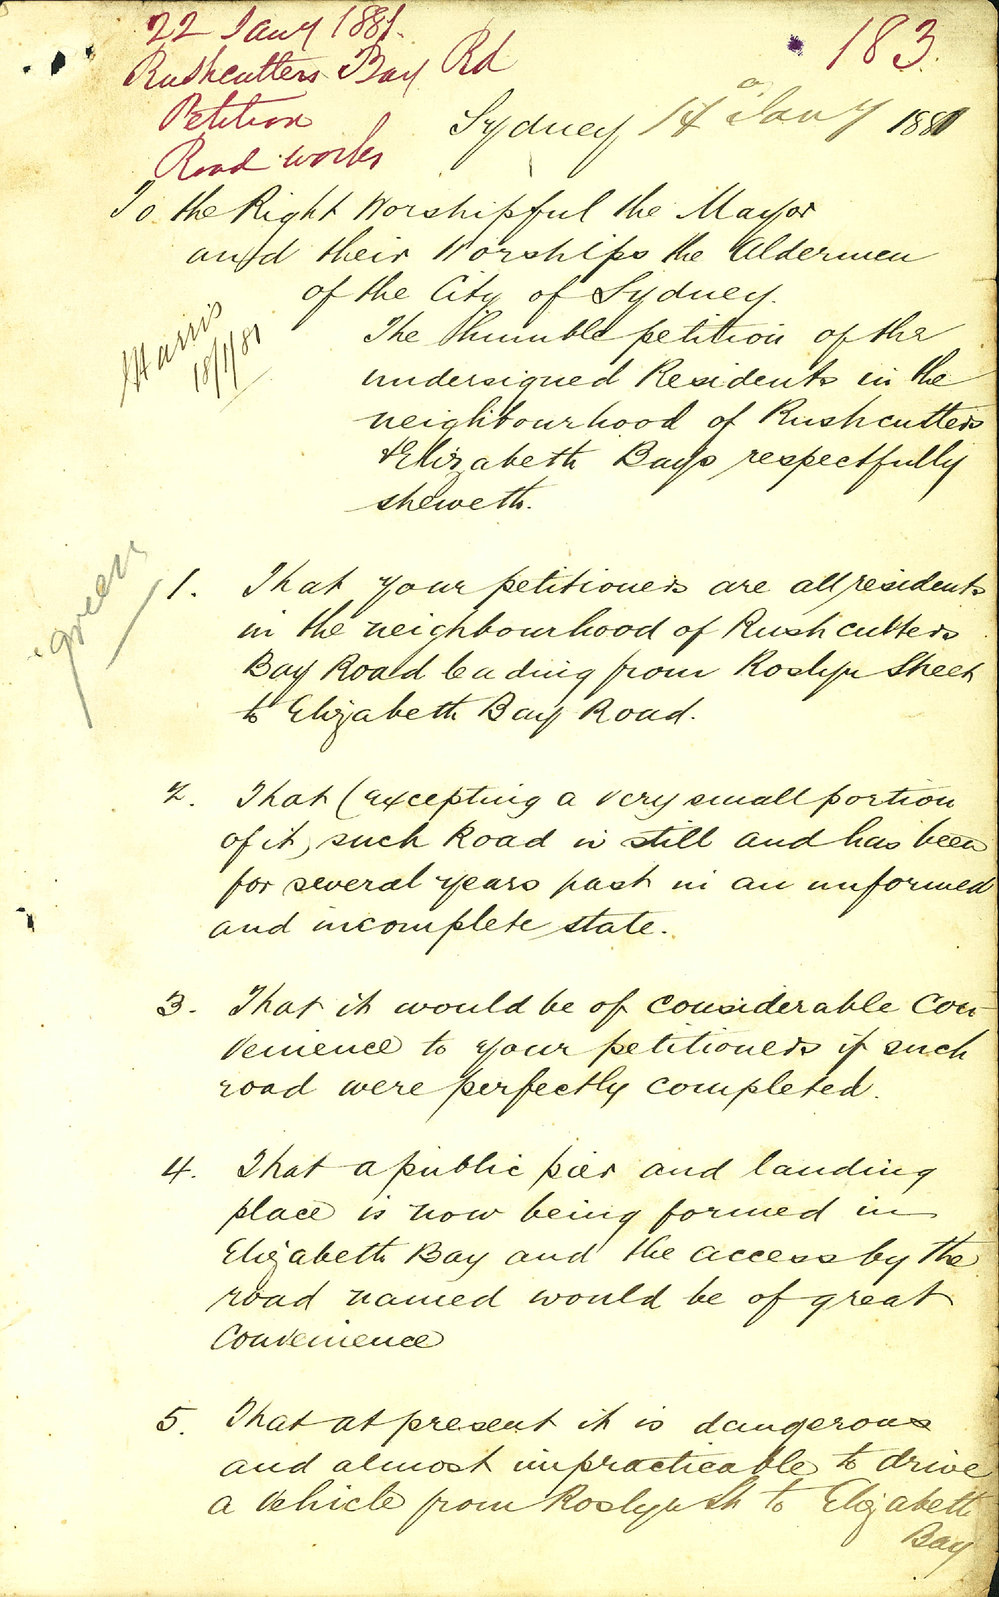 22 Jany 1881.
Rushcutters Bay Rd
Petition
Road works
183.
Sydney 14 Jany 1881
To the Right Worshipful the Mayor
and their Worships the Aldermen
of the City of Sydney.
The Humble petition of the
undersigned Residents in the
neighbourhood of Rushcutters
& Elizabeth Bays respectfully
sheweth.
Harris
18/1/81
green
1. That your petitioners are all residents
in the neighbourhood of Rushcutters
Bay Road leading from Roslyn Street
to Elizabeth Bay Road.
2. That (excepting a very small portion
of it) such Road is still and has been
for several years past in an unformed
and incomplete state.
3. That it would be of considerable con-
venience to your petitioners if such
road were perfectly completed.
4. That a public pier and landing
place is now being formed in
Elizabeth Bay and the access by the
road named would be of great
convenience
5. That at present it is dangerous
and almost impracticable to drive
a vehicle from Roslyn St to Elizabeth
Bay